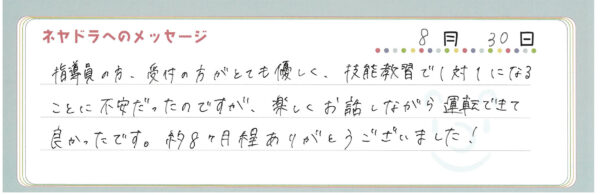 ネヤドラへのメッセージ
8月 30日
指導員の方、受付の方がとても優しく、技能教習で1対1になる
ことに不安だったのですが、楽しくお話しながら運転できて
良かったです。約8ヶ月程ありがとうございました!